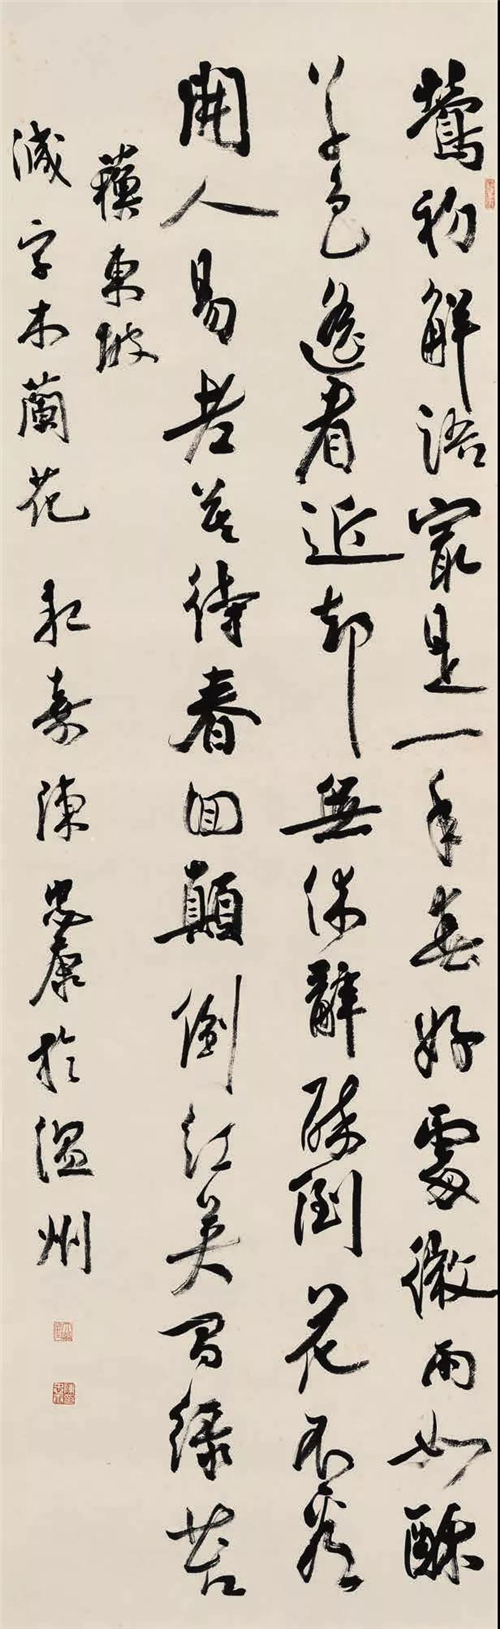 鶯初解語最是一年春好處微雨如酥
草色遙看近却無休辭醉倒花不看
開人易老莫待春回顛倒紅英間綠苔
蘇東坡
減字木蘭花 永嘉陳忠康於温州